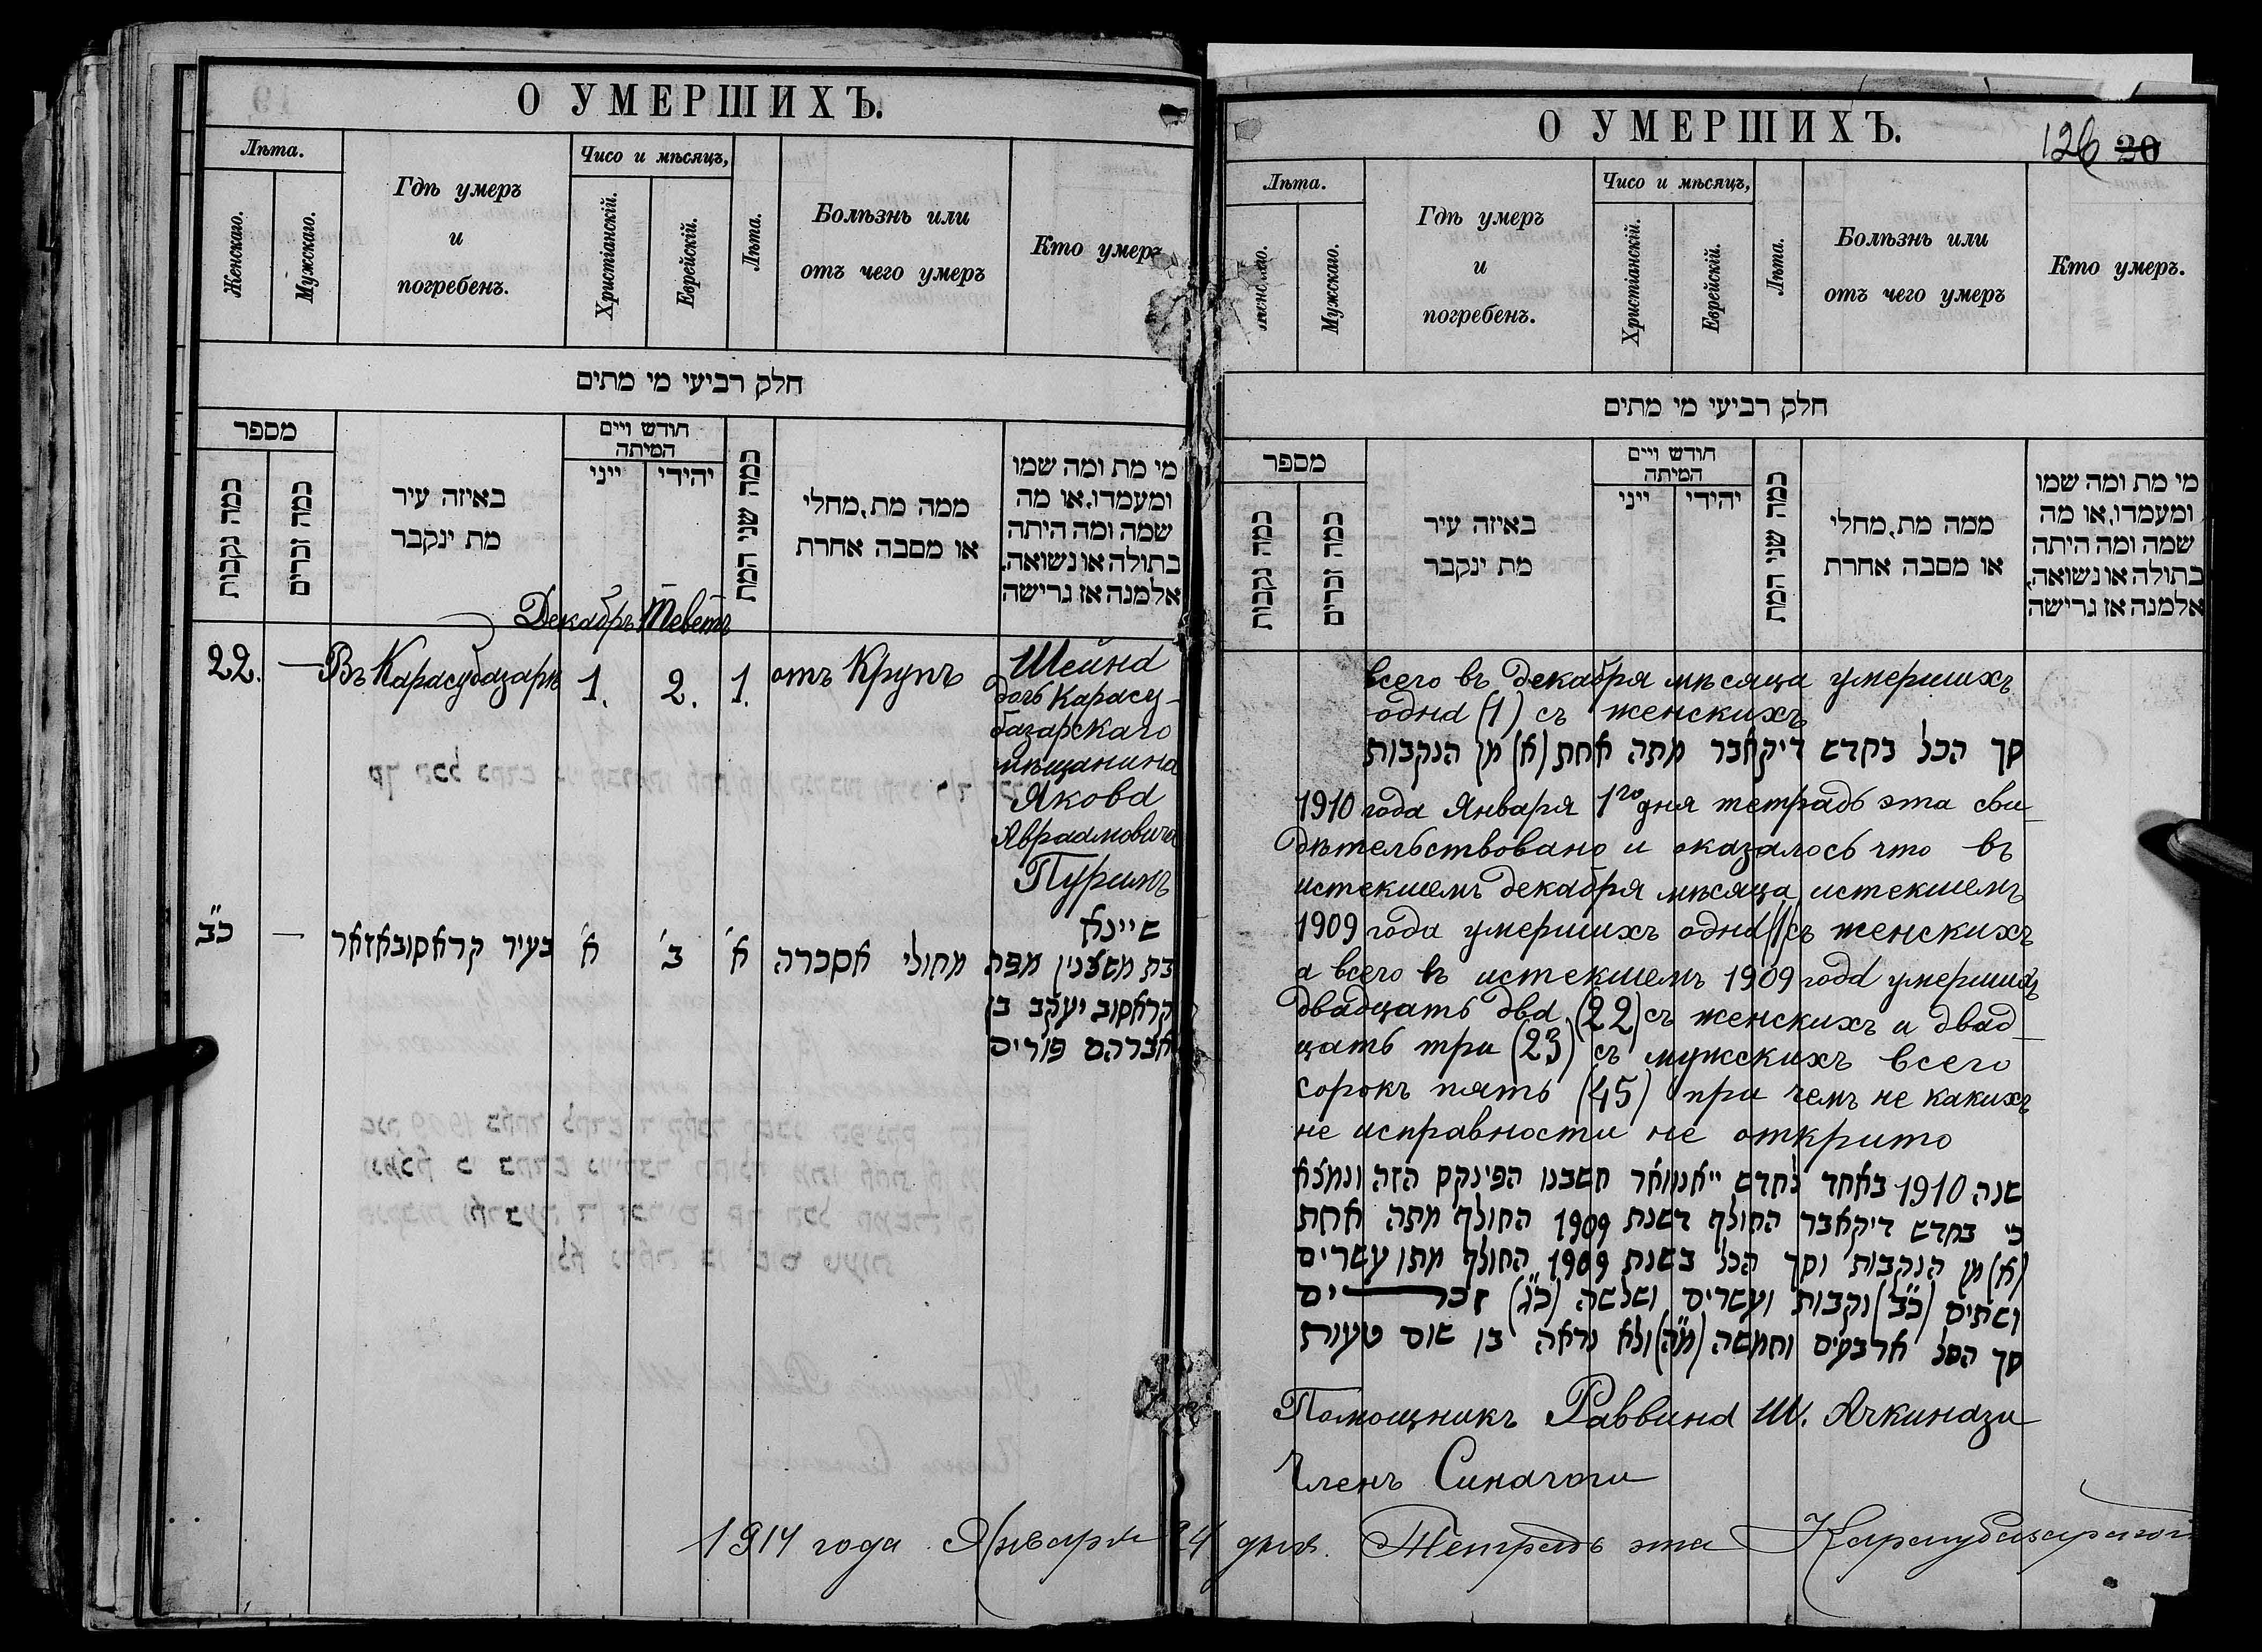 О УМЕРШИХЪ.
Лѣта.
Женскаго.
Мужскаго.
Гдѣ умеръ
и
погребенъ.
Чисо и мѣсяцъ,
Христіанскій.
Еврейскій.
Лѣта.
Болѣзнь или
отъ чего умеръ
Кто умеръ
חלק רביעי מי מתים
מספר
כמה נקבות
כמה זכרים
באיזה עיר
מת ינקבר
חודש ויים
המיתה
ייני
יהידי
כמה שני המת
ממה מת, מחלי
או מסבה אחרת
מי מת ומה שמו
ומעמדו, או מה
שמה ומה היתה
בתולה או נשואה,
אלמנה אז גרישה
Декабръ Теветъ
22. — Въ Карасубазарѣ 1. 2. 1. отъ Крупъ
Шейна
дочь Карасу-
базарскаго
мѣщанина
Якова
Авраамовича
Пуримъ
כ"ב — בעיר קראסובאזאר א' ב' א' מחולי אסכרה
שיינא
בת משצנין מפה
קראסוב יעקב בן
אברהם פורים
О УМЕРШИХЪ.
126 20
Лѣта.
Мужскаго.
Гдѣ умеръ
и
погребенъ.
Чисо и мѣсяцъ,
Христіанскій.
Еврейскій.
Лѣта.
Болѣзнь или
отъ чего умеръ
Кто умеръ.
חלק רביעי מי מתים
מספר
כמה נקבות
כמה זכרים
באיזה עיר
מת ינקבר
חודש ויים
המיתה
ייני
יהידי
כמה שני המת
ממה מת, מחלי
או מסבה אחרת
מי מת ומה שמו
ומעמדו, או מה
שמה ומה היתה
בתולה או נשואה,
אלמנה אז גרישה
всего въ декабря мѣсяца умершихъ
одна (1) съ женскихъ
סך הכל בחדש דיקאבר מתה אחת (א) מן הנקבות
1910 года Января 1го дня тетрадь эта сви-
дѣтельствовано и оказалось что въ
истекшемъ декабря мѣсяца истекшемъ
1909 года умершихъ одна (1) съ женскихъ
а всего въ истекшемъ 1909 года умершихъ
двадцать два (22) съ женскихъ и двад-
цать три (23) съ мужскихъ всего
сорокъ пять (45) при чемъ не какихъ
не исправности не открито
שנה 1910 באחד לחדש יאנוואר חשבנו הפינקס הזה ונמצא
כי בחדש דיקאבר החולף דשנת 1909 החולף מתה אחת
(א) מן הנקבות וסך הכל בשנת 1909 החולף מתו עשרים
ושתים (כ"ב) נקבות ועשרים ושלשה (כ"ג) זכרים
סך הכל ארבעים וחמשה (מ"ה) ולא נראה בו שום טעות
Помощникъ Раввина Ш. Ачкинази
Членъ Синагоги
1914 года Января 24 дня. Тетрадь эта Карасубазарской